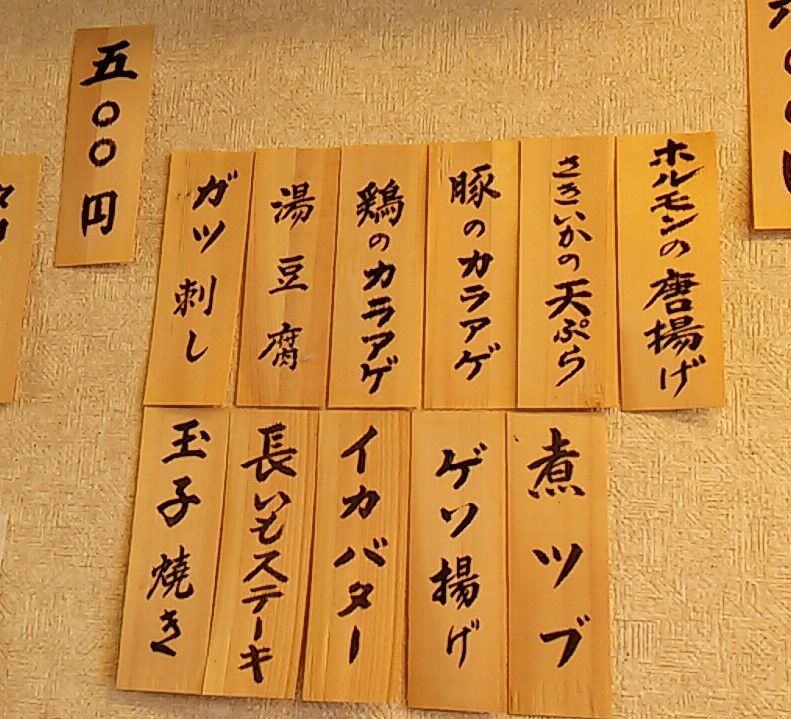 ホルモンの唐揚げ
さきいかの天ぷら
豚のカラアゲ
鶏のカラアゲ
湯豆腐
ガツ刺し
五〇〇円
煮ツブ
ゲソ揚げ
イカバター
長いもステーキ
玉子焼き